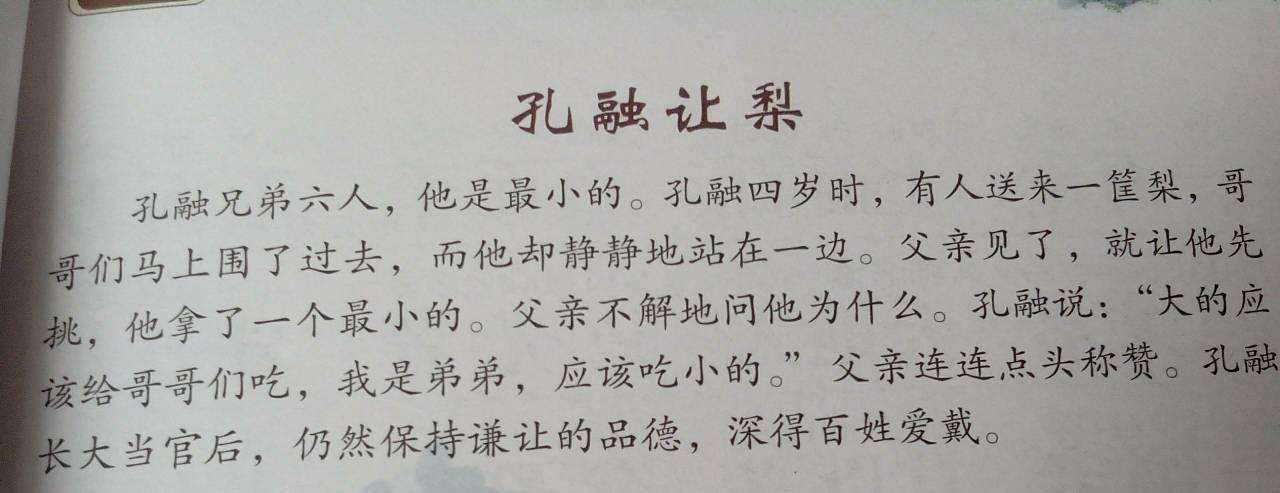 孔融让梨
孔融兄弟六人，他是最小的。孔融四岁时，有人送来一筐梨，哥
哥们马上围了过去，而他却静静地站在一边。父亲见了，就让他先
挑，他拿了一个最小的。父亲不解地问他为什么。孔融说：“大的应
该给哥哥们吃，我是弟弟，应该吃小的。”父亲连连点头称赞。孔融
长大当官后，仍然保持谦让的品德，深得百姓爱戴。